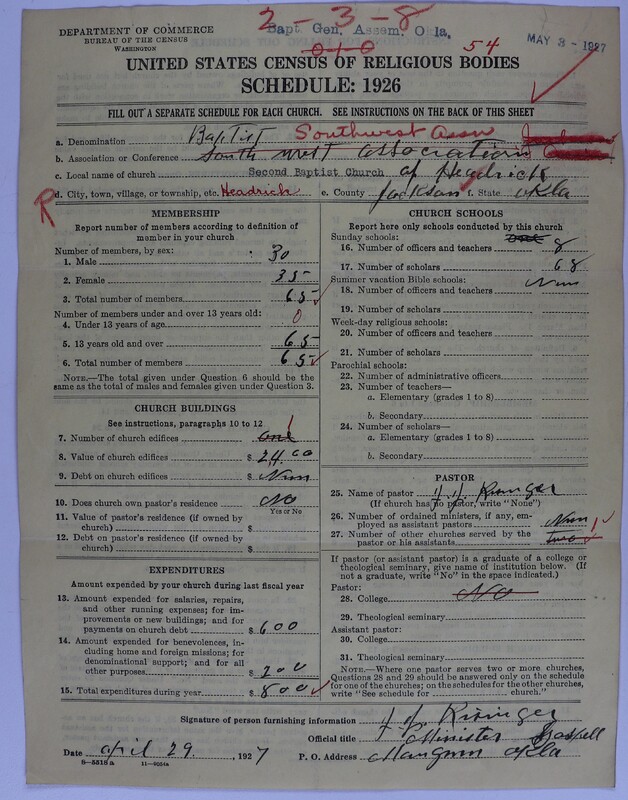 2-3-8
Bapt Gen. Assem. Okla.
DEPARTMENT OF COMMERCE
BUREAU OF THE CENSUS
WASHINGTON
0-1-0
54
MAY 3 - 1927
UNITED STATES CENSUS OF RELIGIOUS BODIES
SCHEDULE: 1926
FILL OUT A SEPARATE SCHEDULE FOR EACH CHURCH. SEE INSTRUCTIONS ON THE BACK OF THIS SHEET
a. Denomination Baptist Southwest Assn
b. Association or Conference South west association
c. Local name of church Second Baptist Church of Headrick
d. City, town, village, or township, etc. Headrick e. County Jackson f. State okla
R
MEMBERSHIP
Report number of members according to definition of
member in your church
Number of members, by sex:
1. Male 30
2. Female 35
3. Total number of members 65
Number of members under and over 13 years old:
4. Under 13 years of age 0
5. 13 years old and over 65
6. Total number of members 65
NOTE.—The total given under Question 6 should be
the same as the total of males and females given under Question 3.
CHURCH BUILDINGS
See instructions, paragraphs 10 to 12
7. Number of church edifices one 1
8. Value of church edifices $ 2400
9. Debt on church edifices $ Nun
10. Does church own pastor's residence NO
Yes or No
11. Value of pastor's residence (if owned by
church) $
12. Debt on pastor's residence (if owned by
church) $
EXPENDITURES
Amount expended by your church during last fiscal year
13. Amount expended for salaries, repairs,
and other running expenses; for im-
provements or new buildings; and for
payments on church debt $ 600
14. Amount expended for benevolences, in-
cluding home and foreign missions; for
denominational support; and for all
other purposes $ 200
15. Total expenditures during year $ 800
CHURCH SCHOOLS
Report here only schools conducted by this church
Sunday schools:
16. Number of officers and teachers 8
17. Number of scholars 68
Summer vacation Bible schools: Nun
18. Number of officers and teachers
19. Number of scholars
Week-day religious schools:
20. Number of officers and teachers
21. Number of scholars
Parochial schools:
22. Number of administrative officers
23. Number of teachers—
a. Elementary (grades 1 to 8)
b. Secondary
24. Number of scholars—
a. Elementary (grades 1 to 8)
b. Secondary
PASTOR
25. Name of pastor
(If church has no pastor, write "None")
26. Number of ordained ministers, if any, em-
ployed as assistant pastors Nun
27. Number of other churches served by the
pastor or his assistants two 1
If pastor (or assistant pastor) is a graduate of a college or
theological seminary, give name of institution below. (If
not a graduate, write "No" in the space indicated.)
Pastor:
28. College No
29. Theological seminary
Assistant pastor:
30. College
31. Theological seminary
NOTE.—Where one pastor serves two or more churches,
Questions 28 and 29 should be answered only on the schedule
for one of the churches; on the schedules for the other churches,
write "See schedule for church."
Signature of person furnishing information
Official title Minister Gospell
Date april 29, 1927 P. O. Address Mangum okla
8-5518 a 11-9024a